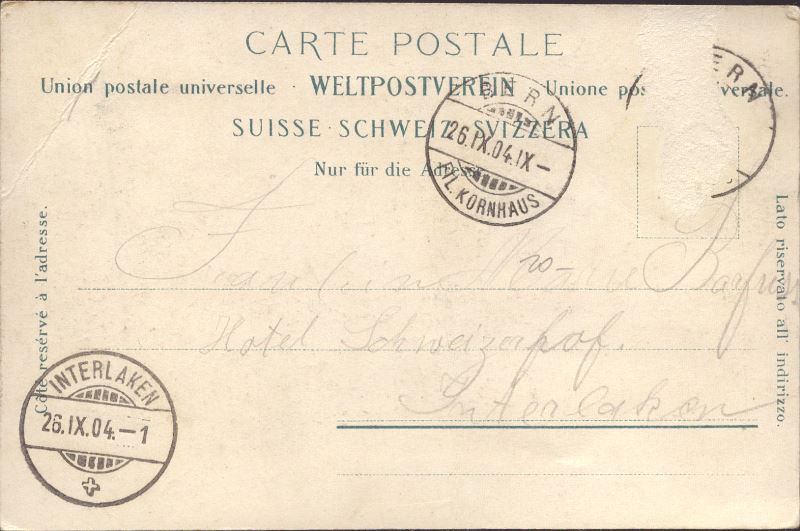 CARTE POSTALE
Union postale universelle · WELTPOSTVEREIN · Unione pos versale.
SUISSE · SCHWEIZ · SVIZZERA
Nur für die Adresse
BERN
26.IX.04.IX–
FIL. KORNHAUS
BERN
Côté réservé à l'adresse.
Lato riservato all' indirizzo.
Hotel Schweizerhof.
Interlaken
INTERLAKEN
26.IX.04.–1